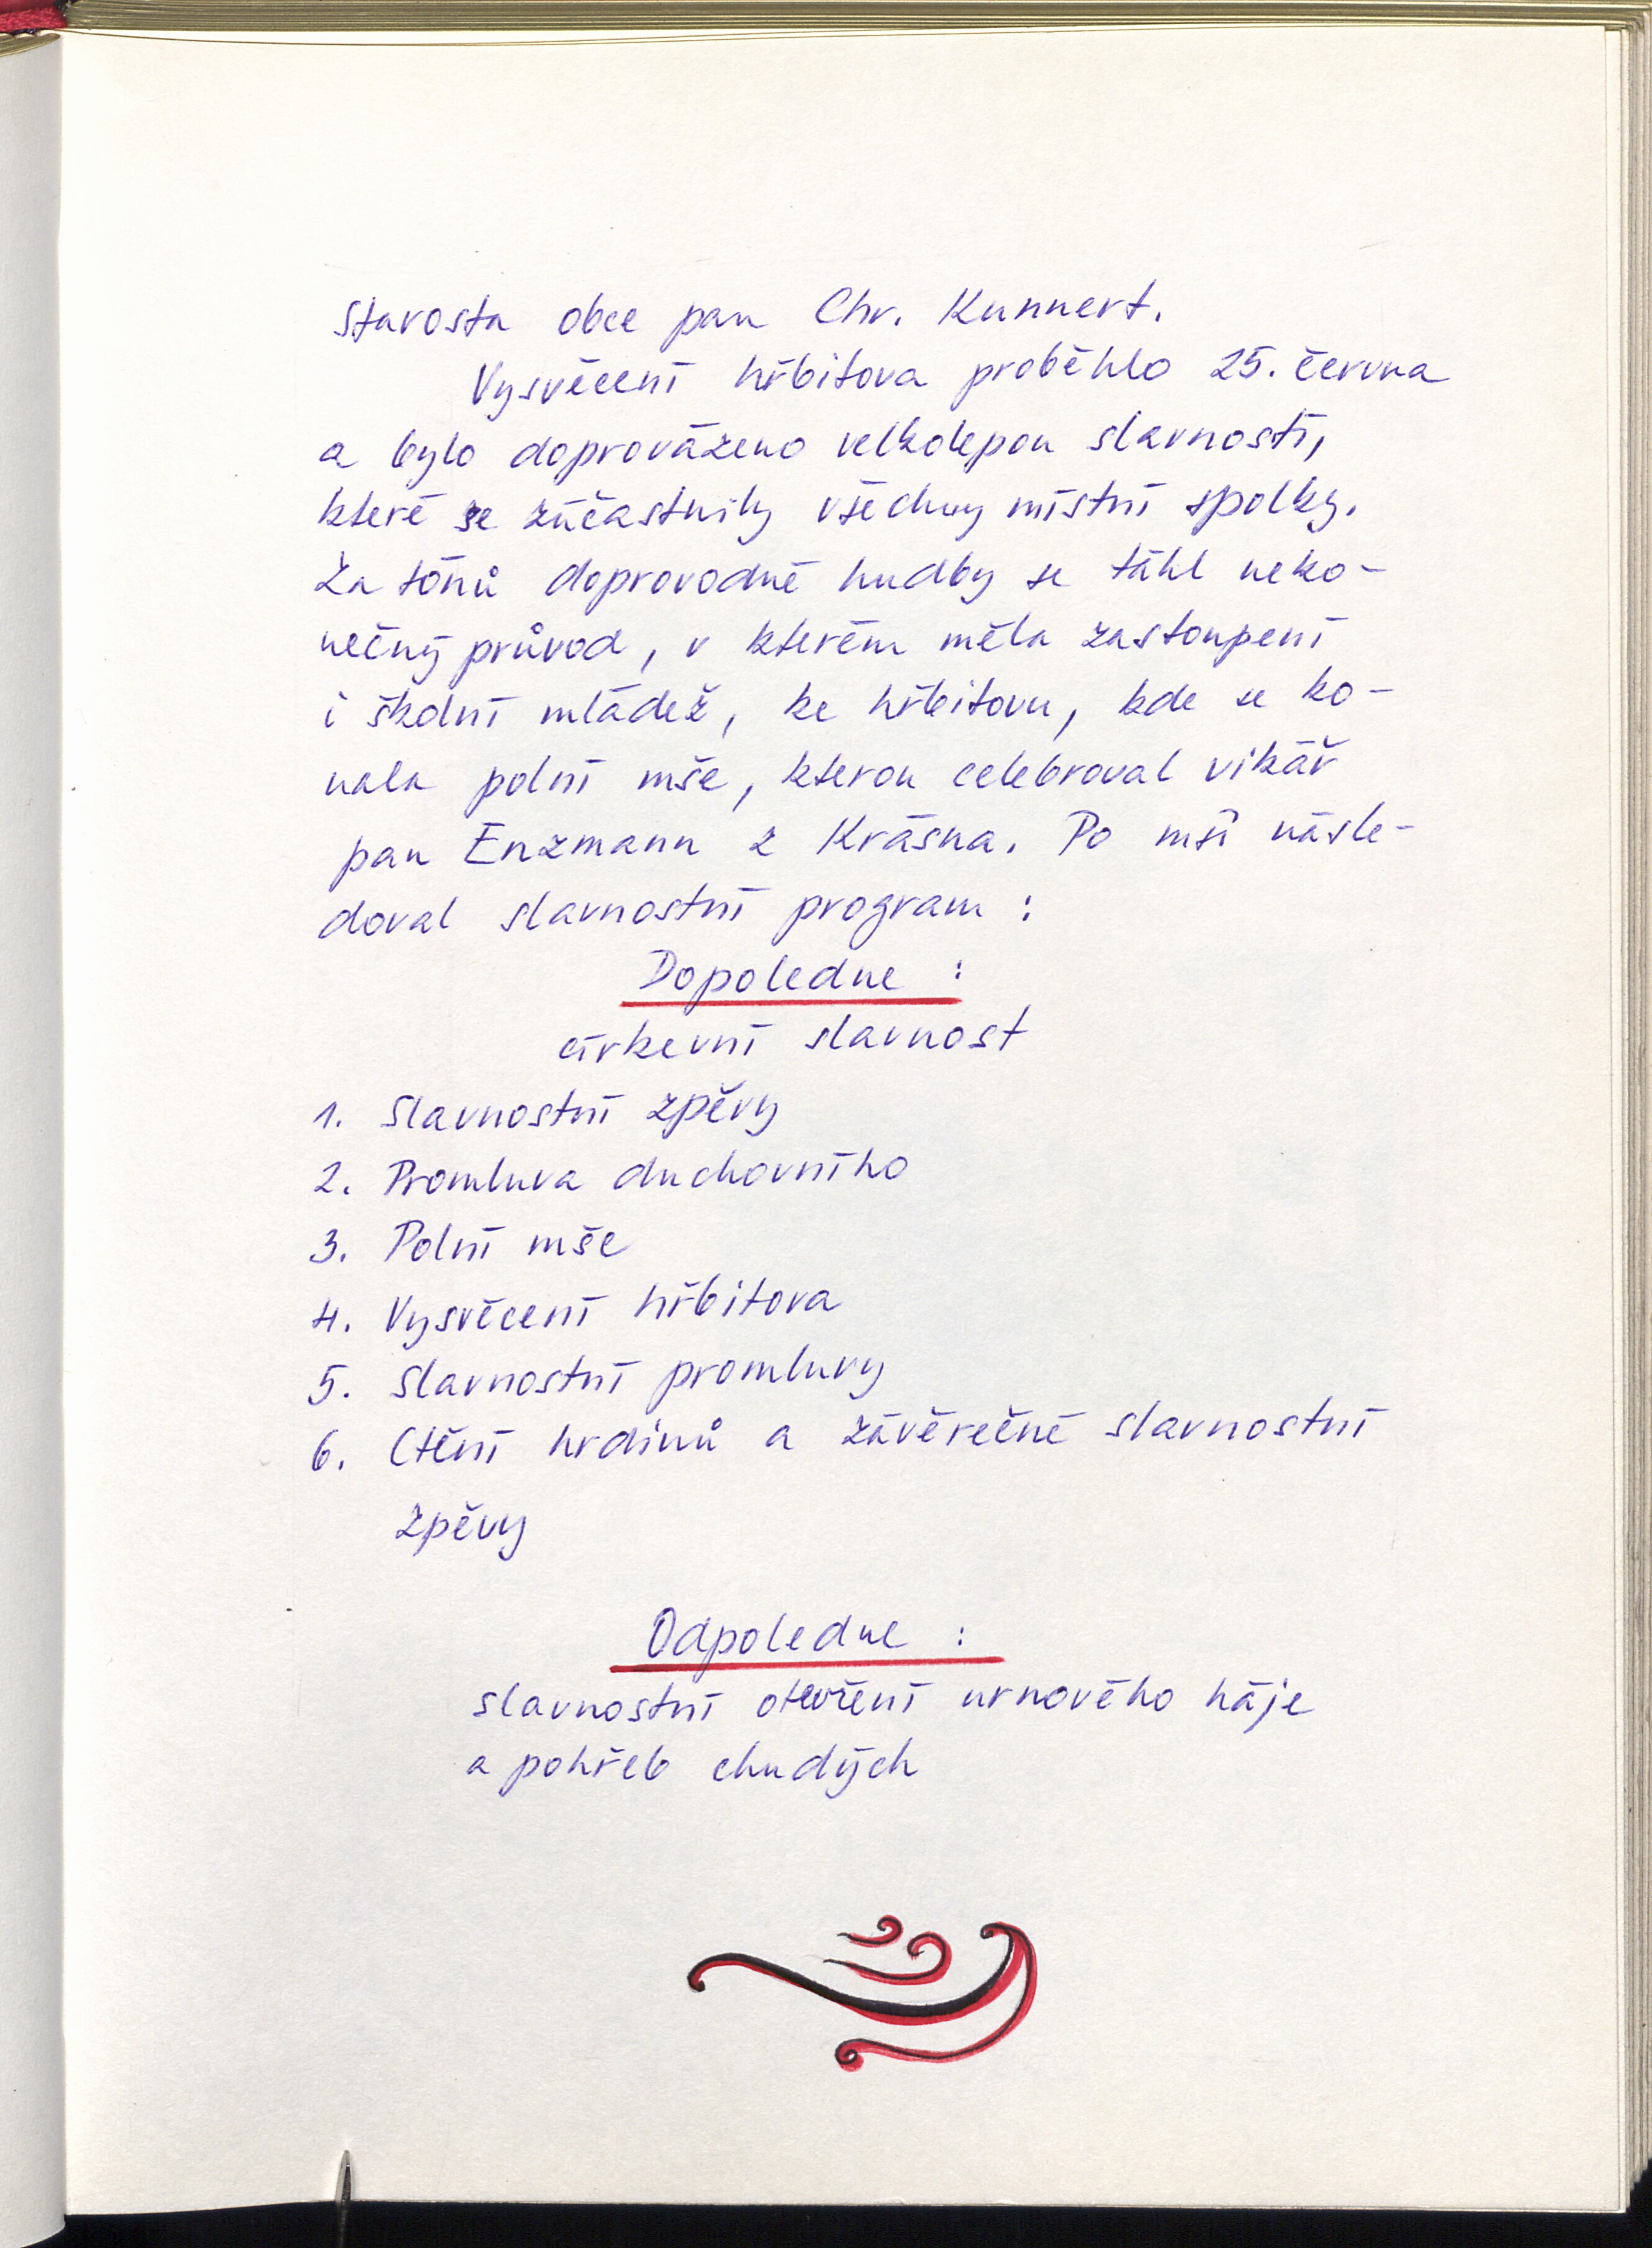 starosta obce pan Chr. Kunnert.
Vysvěcení hřbitova proběhlo 25. června
a bylo doprovázeno velkolepou slavností,
které se zúčastnily všechny místní spolky.
Za tónů doprovodné hudby se táhl neko-
nečný průvod, v kterém měla zastoupení
i školní mládež, ke hřbitovu, kde se ko-
nala polní mše, kterou celebroval vikář
pan Enzmann z Krásna. Po mši násle-
doval slavnostní program :
Dopoledne :
církevní slavnost
1. Slavnostní zpěvy
2. Promluva duchovního
3. Polní mše
4. Vysvěcení hřbitova
5. Slavnostní promluvy
6. Ctění hrdinů a závěrečné slavnostní
zpěvy
Odpoledne :
slavnostní otevření urnového háje
a pohřeb chudých